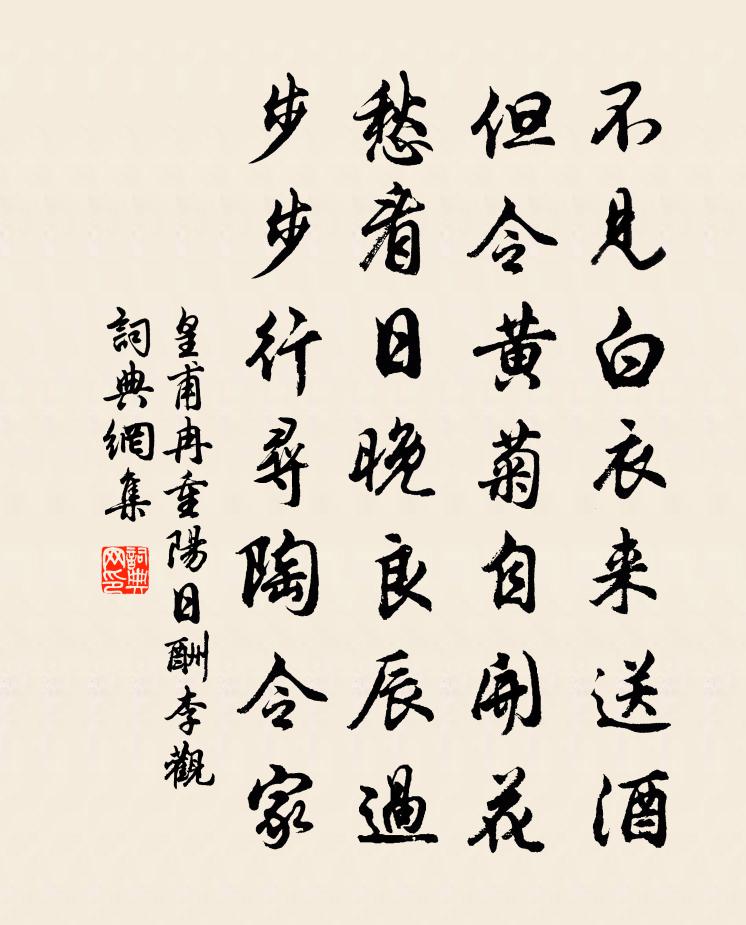 不見白衣来送酒
但令黄菊自開花
愁看日晚良辰過
步步行尋陶令家
皇甫冉重陽日酬李觀
詞典網集
詞典網印